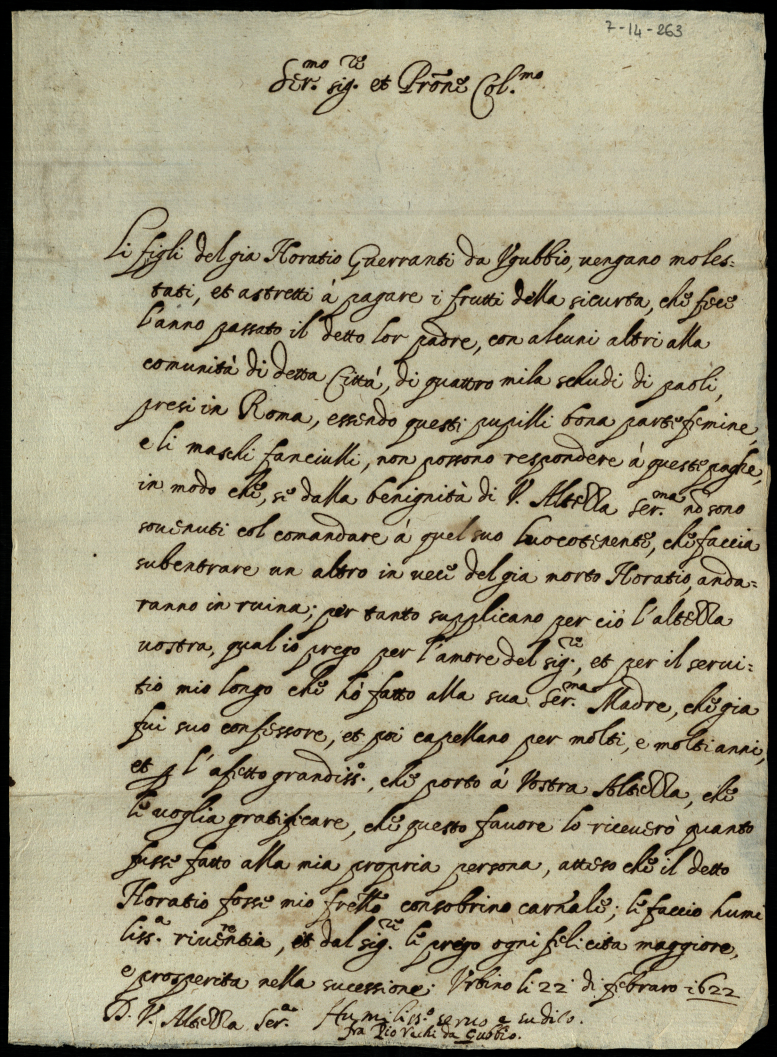 7-14-263
Ser.mo sig.re et Pron̄e Col.mo
Li figli del gia Horatio Guerranti da Vgubbio, vengano moles=
tati, et astretti à pagare i frutti della sicurta, che fece
l'anno passato il detto lor padre, con alcuni altri alla
comunità di detta Città, di quattro mila schudi di paoli,
presi in Roma, essendo questi pupilli bona parte femine,
e li maschi fanciulli, non possono respondere à queste paghe,
in modo che, se dalla benignità di V. Altezza Ser.ma nō sono
souenuti col comandare à quel suo Luocotenente, che faccia
subentrare un altro in uece del gia morto Horatio, anda=
ranno in ruina; per tanto supplicano per ciò l'altezza
uostra, qual io prego per l'amore del sig.re, et per il serui=
tio mio longo che hò fatto alla sua Ser.ma Madre, che gia
fui suo confessore, et poi capellano per molti, e molti anni,
et p l'afetto grandiss.o, che porto à Vostra Altezza, che
li uoglia gratificare, che questo fauore lo riceuerò quanto
fusse fatto alla mia propria persona, atteso che il detto
Horatio fosse mio fretello consobrino carnale; li faccio humi
liss.a riuerentia, et dal sig.re li prego ogni felicita maggiore,
e prosperita nella sucessione; Vrbino li 22 di febraro 1622
D. V. Altezza Ser.a Humiliss.o seruo e sudito.
fra Pio Vachi da Gubbio.